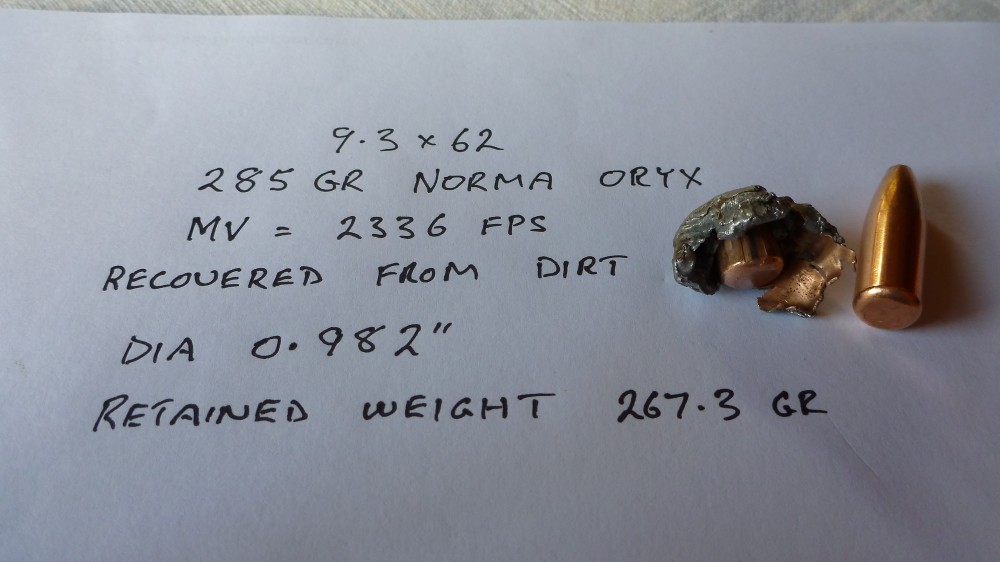 9.3 x 62
285 GR NORMA ORYX
MV = 2336 FPS
RECOVERED FROM DIRT
DIA 0.982"
RETAINED WEIGHT 267.3 GR